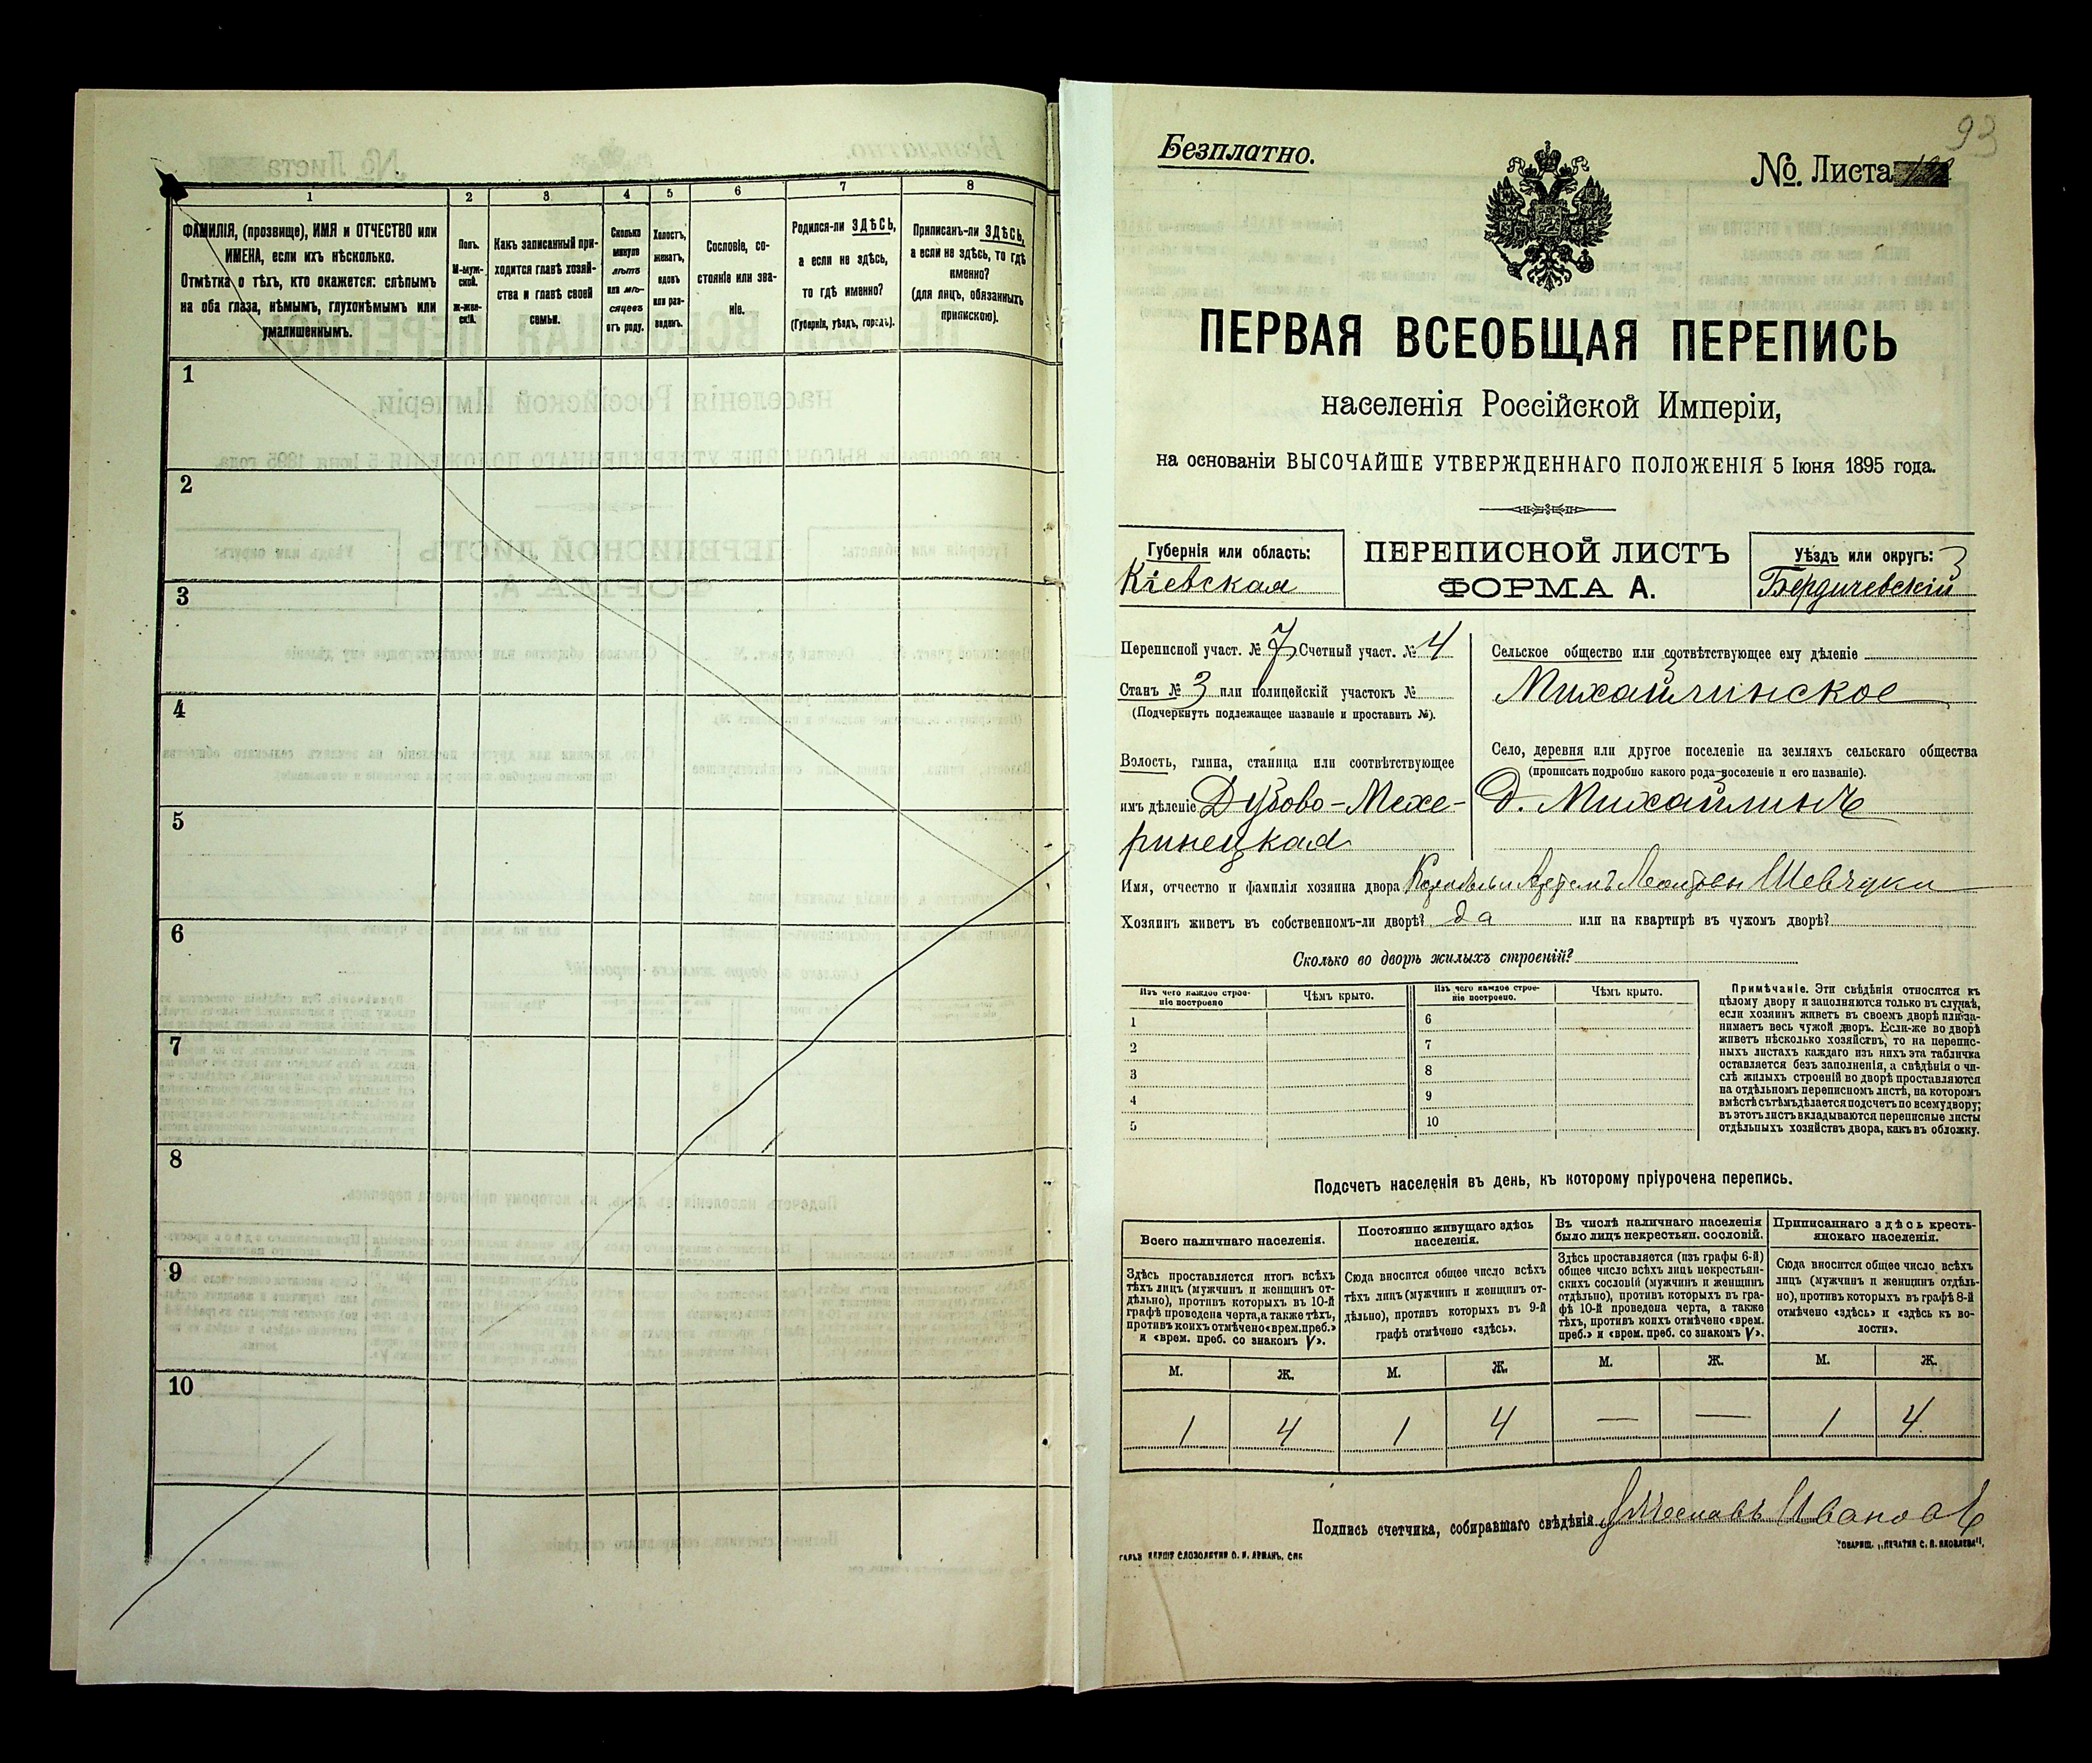 1 2 3 4 5 6 7 8
ФАМИЛІЯ, (прозвище), ИМЯ и ОТЧЕСТВО или
ИМЕНА, если ихъ нѣсколько.
Отмѣтка о тѣхъ, кто окажется: слѣпымъ
на оба глаза, нѣмымъ, глухонѣмымъ или
умалишеннымъ.
Полъ.
М-муж-
ской.
ж-жен-
скій.
Какъ записанный при-
ходится главѣ хозяй-
ства и главѣ своей
семьи.
Сколько
минуло
лѣтъ
или мѣ-
сяцевъ
отъ роду.
Холостъ,
женатъ,
вдовъ
или раз-
веденъ.
Сословіе, со-
стояніе или зва-
ніе.
Родился-ли ЗДѢСЬ,
а если не здѣсь,
то гдѣ именно?
(Губернія, уѣздъ, городъ).
Приписанъ-ли ЗДѢСЬ,
а если не здѣсь, то гдѣ
именно?
(для лицъ, обязанныхъ
припискою).
1
2
3
4
5
6
7
8
9
10
93
Безплатно.
№ Листа
ПЕРВАЯ ВСЕОБЩАЯ ПЕРЕПИСЬ
населенія Россійской Имперіи,
на основаніи ВЫСОЧАЙШЕ УТВЕРЖДЕННАГО ПОЛОЖЕНІЯ 5 Іюня 1895 года.
Губернія или область:
Кіевская
ПЕРЕПИСНОЙ ЛИСТЪ
ФОРМА А.
Уѣздъ или округъ:
Бердичевскій
Переписной участ. № 7 Счетный участ. № 4
Станъ № 3 или полицейскій участокъ №
(Подчеркнуть подлежащее названіе и проставить №).
Волость, гмина, станица или соотвѣтствующее
имъ дѣленіе Дубово-Мехе-
ринецкая
Сельское общество или соотвѣтствующее ему дѣленіе
Михайлинское
Село, деревня или другое поселеніе на земляхъ сельскаго общества
(прописать подробно какого рода поселеніе и его названіе).
д. Михайлинъ
Имя, отчество и фамилія хозяина двора Шевчуки
Хозяинъ живетъ въ собственномъ-ли дворѣ? да или на квартирѣ въ чужомъ дворѣ?
Сколько во дворѣ жилыхъ строеній?
Изъ чего каждое строе-
ніе построено
Чѣмъ крыто.
Изъ чего каждое строе-
ніе построено.
Чѣмъ крыто.
1 6
2 7
3 8
4 9
5 10
Примѣчаніе. Эти свѣдѣнія относятся къ
цѣлому двору и заполняются только въ случаѣ,
если хозяинъ живетъ въ своемъ дворѣ или за-
нимаетъ весь чужой дворъ. Если-же во дворѣ
живетъ нѣсколько хозяйствъ, то на перепис-
ныхъ листахъ каждаго изъ нихъ эта табличка
оставляется безъ заполненія, а свѣдѣнія о чи-
слѣ жилыхъ строеній во дворѣ проставляются
на отдѣльномъ переписномъ листѣ, на которомъ
вмѣстѣ съ тѣмъ дѣлается подсчетъ по всему двору;
въ этотъ листъ вкладываются переписные листы
отдѣльныхъ хозяйствъ двора, какъ въ обложку.
Подсчетъ населенія въ день, къ которому пріурочена перепись.
Всего наличнаго населенія.
Здѣсь проставляется итогъ всѣхъ
тѣхъ лицъ (мужчинъ и женщинъ от-
дѣльно), противъ которыхъ въ 10-й
графѣ проведена черта, а также тѣхъ,
противъ коихъ отмѣчено «врем. преб.»
и «врем. преб. со знакомъ V».
Постоянно живущаго здѣсь
населенія.
Сюда вносится общее число всѣхъ
тѣхъ лицъ (мужчинъ и женщинъ от-
дѣльно), противъ которыхъ въ 9-й
графѣ отмѣчено «здѣсь».
Въ числѣ наличнаго населенія
было лицъ некрестьян. сословій.
Здѣсь проставляется (изъ графы 6-й)
общее число всѣхъ лицъ некрестьян-
скихъ сословій (мужчинъ и женщинъ
отдѣльно), противъ которыхъ въ гра-
фѣ 10-й проведена черта, а также
тѣхъ, противъ коихъ отмѣчено «врем.
преб.» и «врем. преб. со знакомъ V».
Приписаннаго здѣсь кресть-
янскаго населенія.
Сюда вносится общее число всѣхъ
лицъ (мужчинъ и женщинъ отдѣль-
но), противъ которыхъ въ графѣ 8-й
отмѣчено «здѣсь» и «здѣсь къ во-
лости».
М. Ж. М. Ж. М. Ж. М. Ж.
1 4 1 4 — — 1 4
Подпись счетчика, собиравшаго свѣдѣнія Ивановъ
Товарищ. „Печатня С. П. Яковлева".